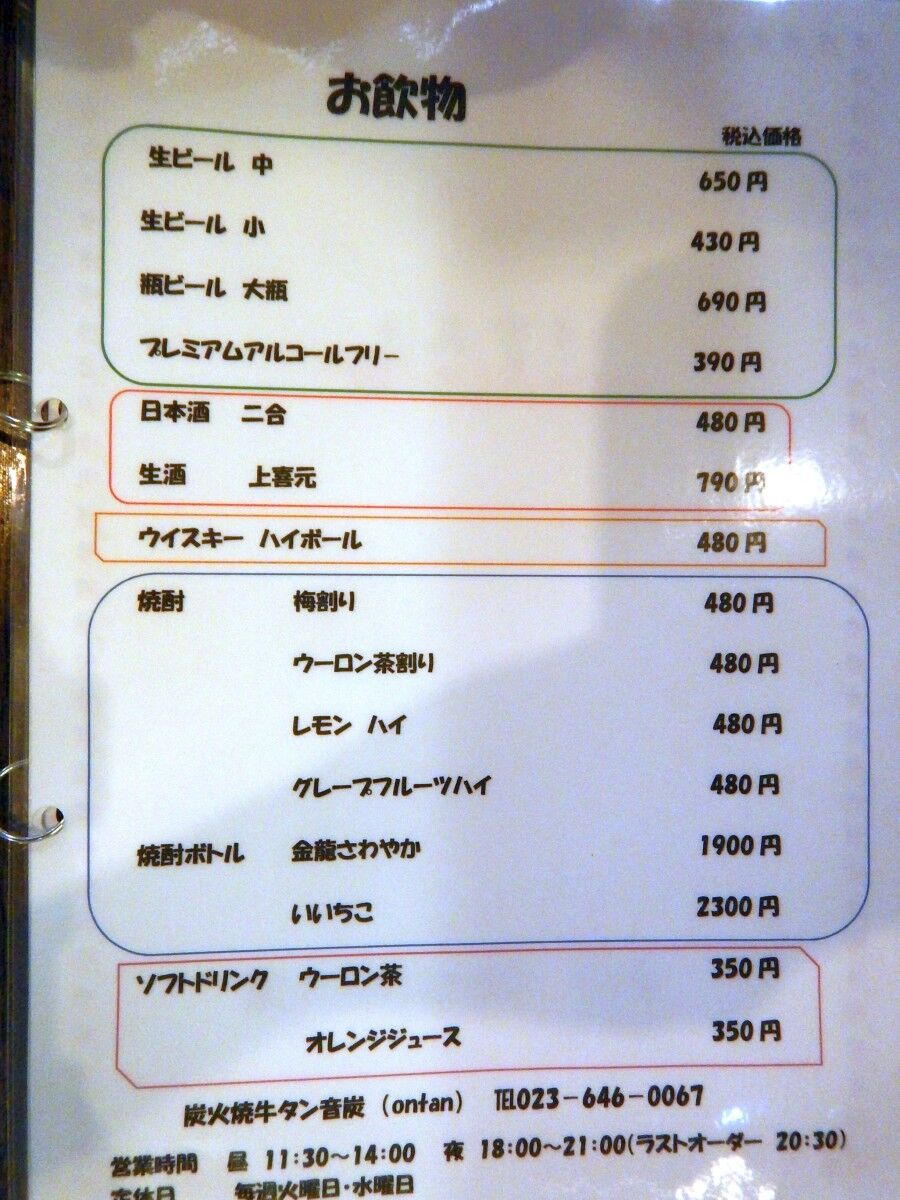 お飲物
税込価格
生ビール 中 650円
生ビール 小 430円
瓶ビール 大瓶 690円
プレミアムアルコールフリー 390円
日本酒 二合 480円
生酒 上喜元 790円
ウイスキー ハイボール 480円
焼酎 梅割り 480円
ウーロン茶割り 480円
レモン ハイ 480円
グレープフルーツハイ 480円
焼酎ボトル 金龍さわやか 1900円
いいちこ 2300円
ソフトドリンク ウーロン茶 350円
オレンジジュース 350円
炭火焼牛タン音炭 (ontan) TEL023-646-0067
営業時間 昼 11:30~14:00 夜 18:00~21:00(ラストオーダー 20:30)
定休日 毎週火曜日・水曜日